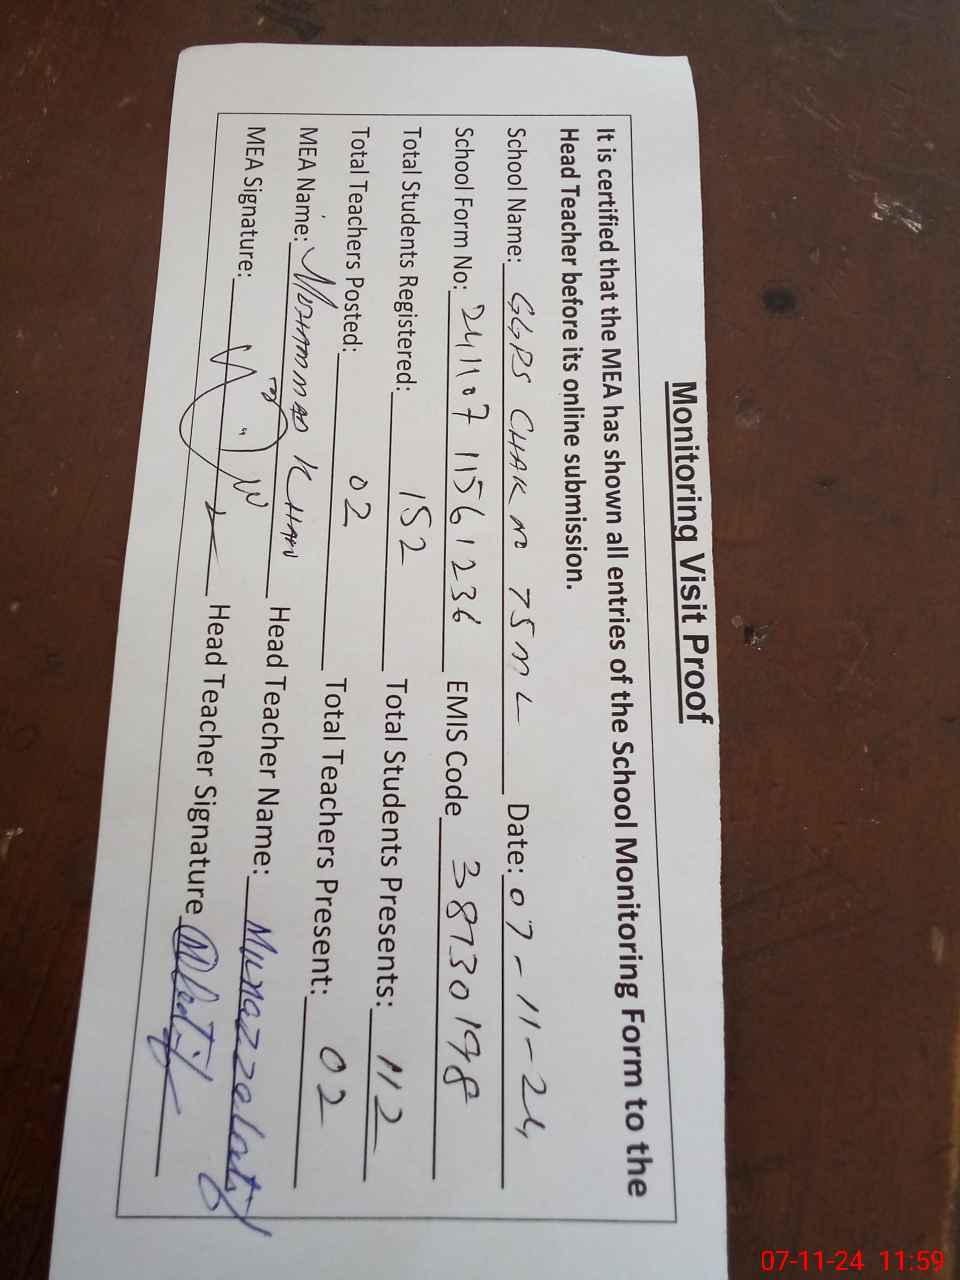 Monitoring Visit Proof
It is certified that the MEA has shown all entries of the School Monitoring Form to the
Head Teacher before its online submission.
School Name: GGPS CHAK NO 75 ML Date: 07-11-24
School Form No: 241107 1156 1236 EMIS Code 38730198
Total Students Registered: 152 Total Students Presents: 112
Total Teachers Posted: 02 Total Teachers Present: 02
MEA Name: MOHAMMAD KHAN Head Teacher Name:
MEA Signature: Head Teacher Signature
07-11-24 11:59